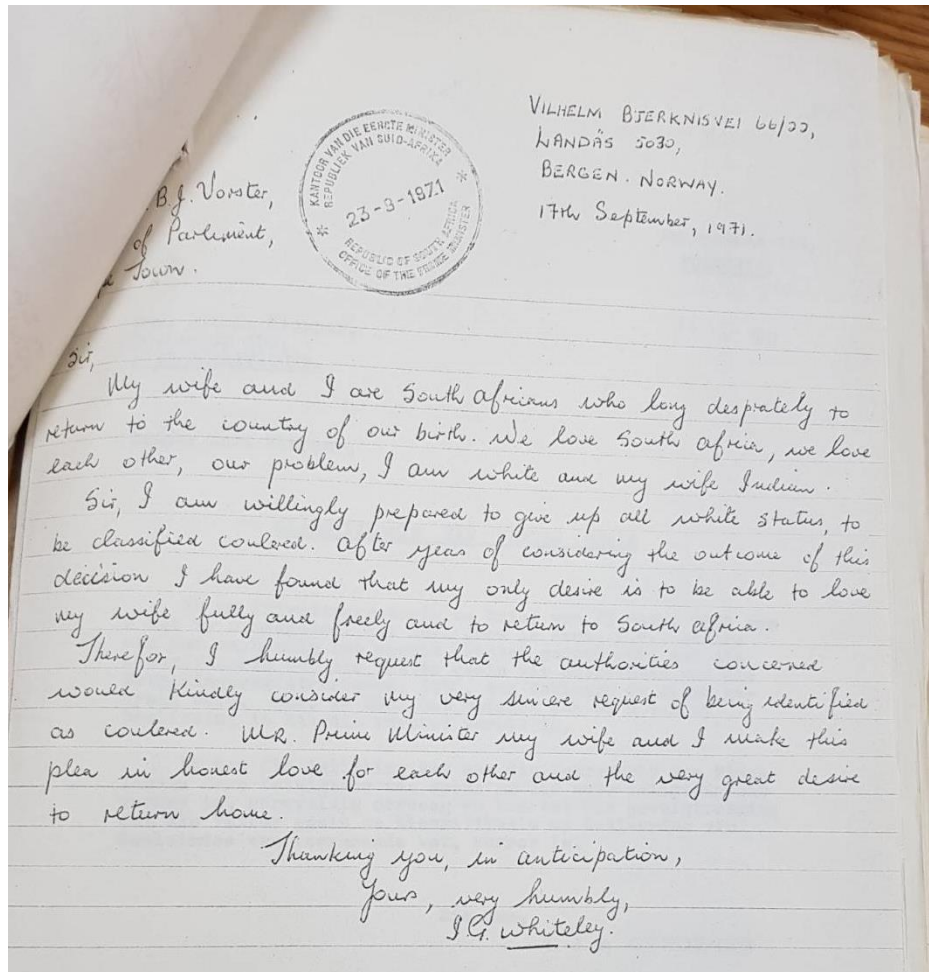 VILHELM BJERKNISVEI 66/22,
LANDÄS 5030,
BERGEN. NORWAY.
17th September, 1971.
KANTOOR VAN DIE EERSTE MINISTER
REPUBLIEK VAN SUID-AFRIKA
23-9-1971
REPUBLIC OF SOUTH AFRICA
OFFICE OF THE PRIME MINISTER
B.J. Vorster,
of Parliment,
Town.
Sir,
My wife and I are South Africans who long desprately to
return to the country of our birth. We love South Africa, we love
each other, our problem, I am white and my wife Indian.
Sir, I am willingly prepared to give up all white status, to
be classified coulered. After years of considering the outcome of this
decision I have found that my only desire is to be able to love
my wife fully and freely and to return to South Africa.
Therefor, I humbly request that the authorities concerned
would kindly consider my very sincere request of being identified
as coulered. MR. Prime Minister my wife and I make this
plea in honest love for each other and the very great desire
to return home.
Thanking you, in anticipation,
Yours, very humbly,
I.G. Whiteley.